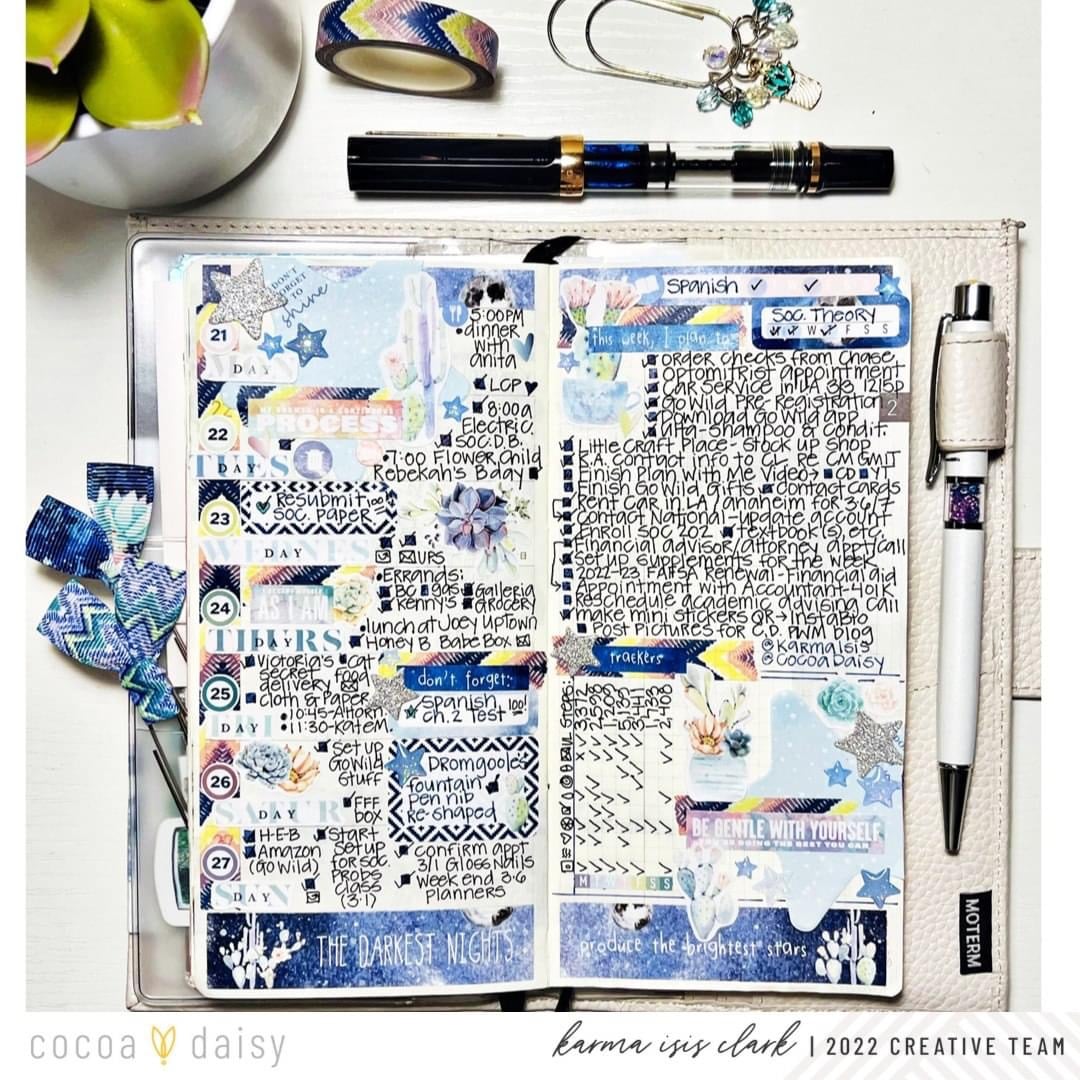 DON'T
FORGET
TO
shine
21
MON
DAY
5:00PM
dinner
with
anita
LCP
22
PROCESS
TUES
DAY
8:00a
Electric.
SOC. D.B.
7:00 Flower Child
Rebekah's Bday
23
Resubmit 100
SOC. PAPER
WEDNES
DAY
URS
24
AS I AM
THURS
DAY
Errands:
BC gas Galleria
Kenny's Grocery
lunch at Joey Uptown
Honey B Babe Box
25
FRI
DAY
Victoria's cat
secret food
delivery
Cloth & Paper
10:45-Attorn
11:30-Kate M.
don't forget:
Spanish 100!
Ch. 2 Test
26
SATUR
DAY
Set up
Go Wild
Stuff
FFF
box
Dromgoole's
fountain
pen nib
re-shaped
27
SUN
DAY
H-E-B Start
Amazon Setup
(Go Wild) for Soc.
Probs
class
(3.1)
Confirm appt
3/1 Gloss Nails
Week end 3.6
planners
THE DARKEST NIGHTS
Spanish ✓ ✓
SOC. THEORY
W F S S
this week, I plan to:
Order checks from Chase
Optomitrist appointment
Car Service in LA 3/3 1215p
Go Wild Pre-Registration
Download Go Wild app
ulta-Shampoo & Condit.
2
Little Craft Place-Stock up shop
K.A. Contact info to CL re CM GMIT
Finish Plan with Me Video? CD YT
Finish Go Wild Gifts Contact Cards
Rent Car in LA/anaheim for 3.6/7
Contact National-update account
Enroll SOC 202 Textbook(s), etc.
Financial advisor/attorney appt/call
Setup supplements for the week
2022-23 FAFSA Renewal-Financial aid
Appointment with Accountant-401k
Reschedule academic advising call
make mini stickers QR → InstaBio
Post Pictures for C.D. PWM blog
@KarmaIsis
@CocoaDaisy
trackers
STEPS:
BE GENTLE WITH YOURSELF
YOU'RE DOING THE BEST YOU CAN
M T W T F S S
produce the brightest stars
MOTERM
cocoa daisy
karma isis clark | 2022 CREATIVE TEAM